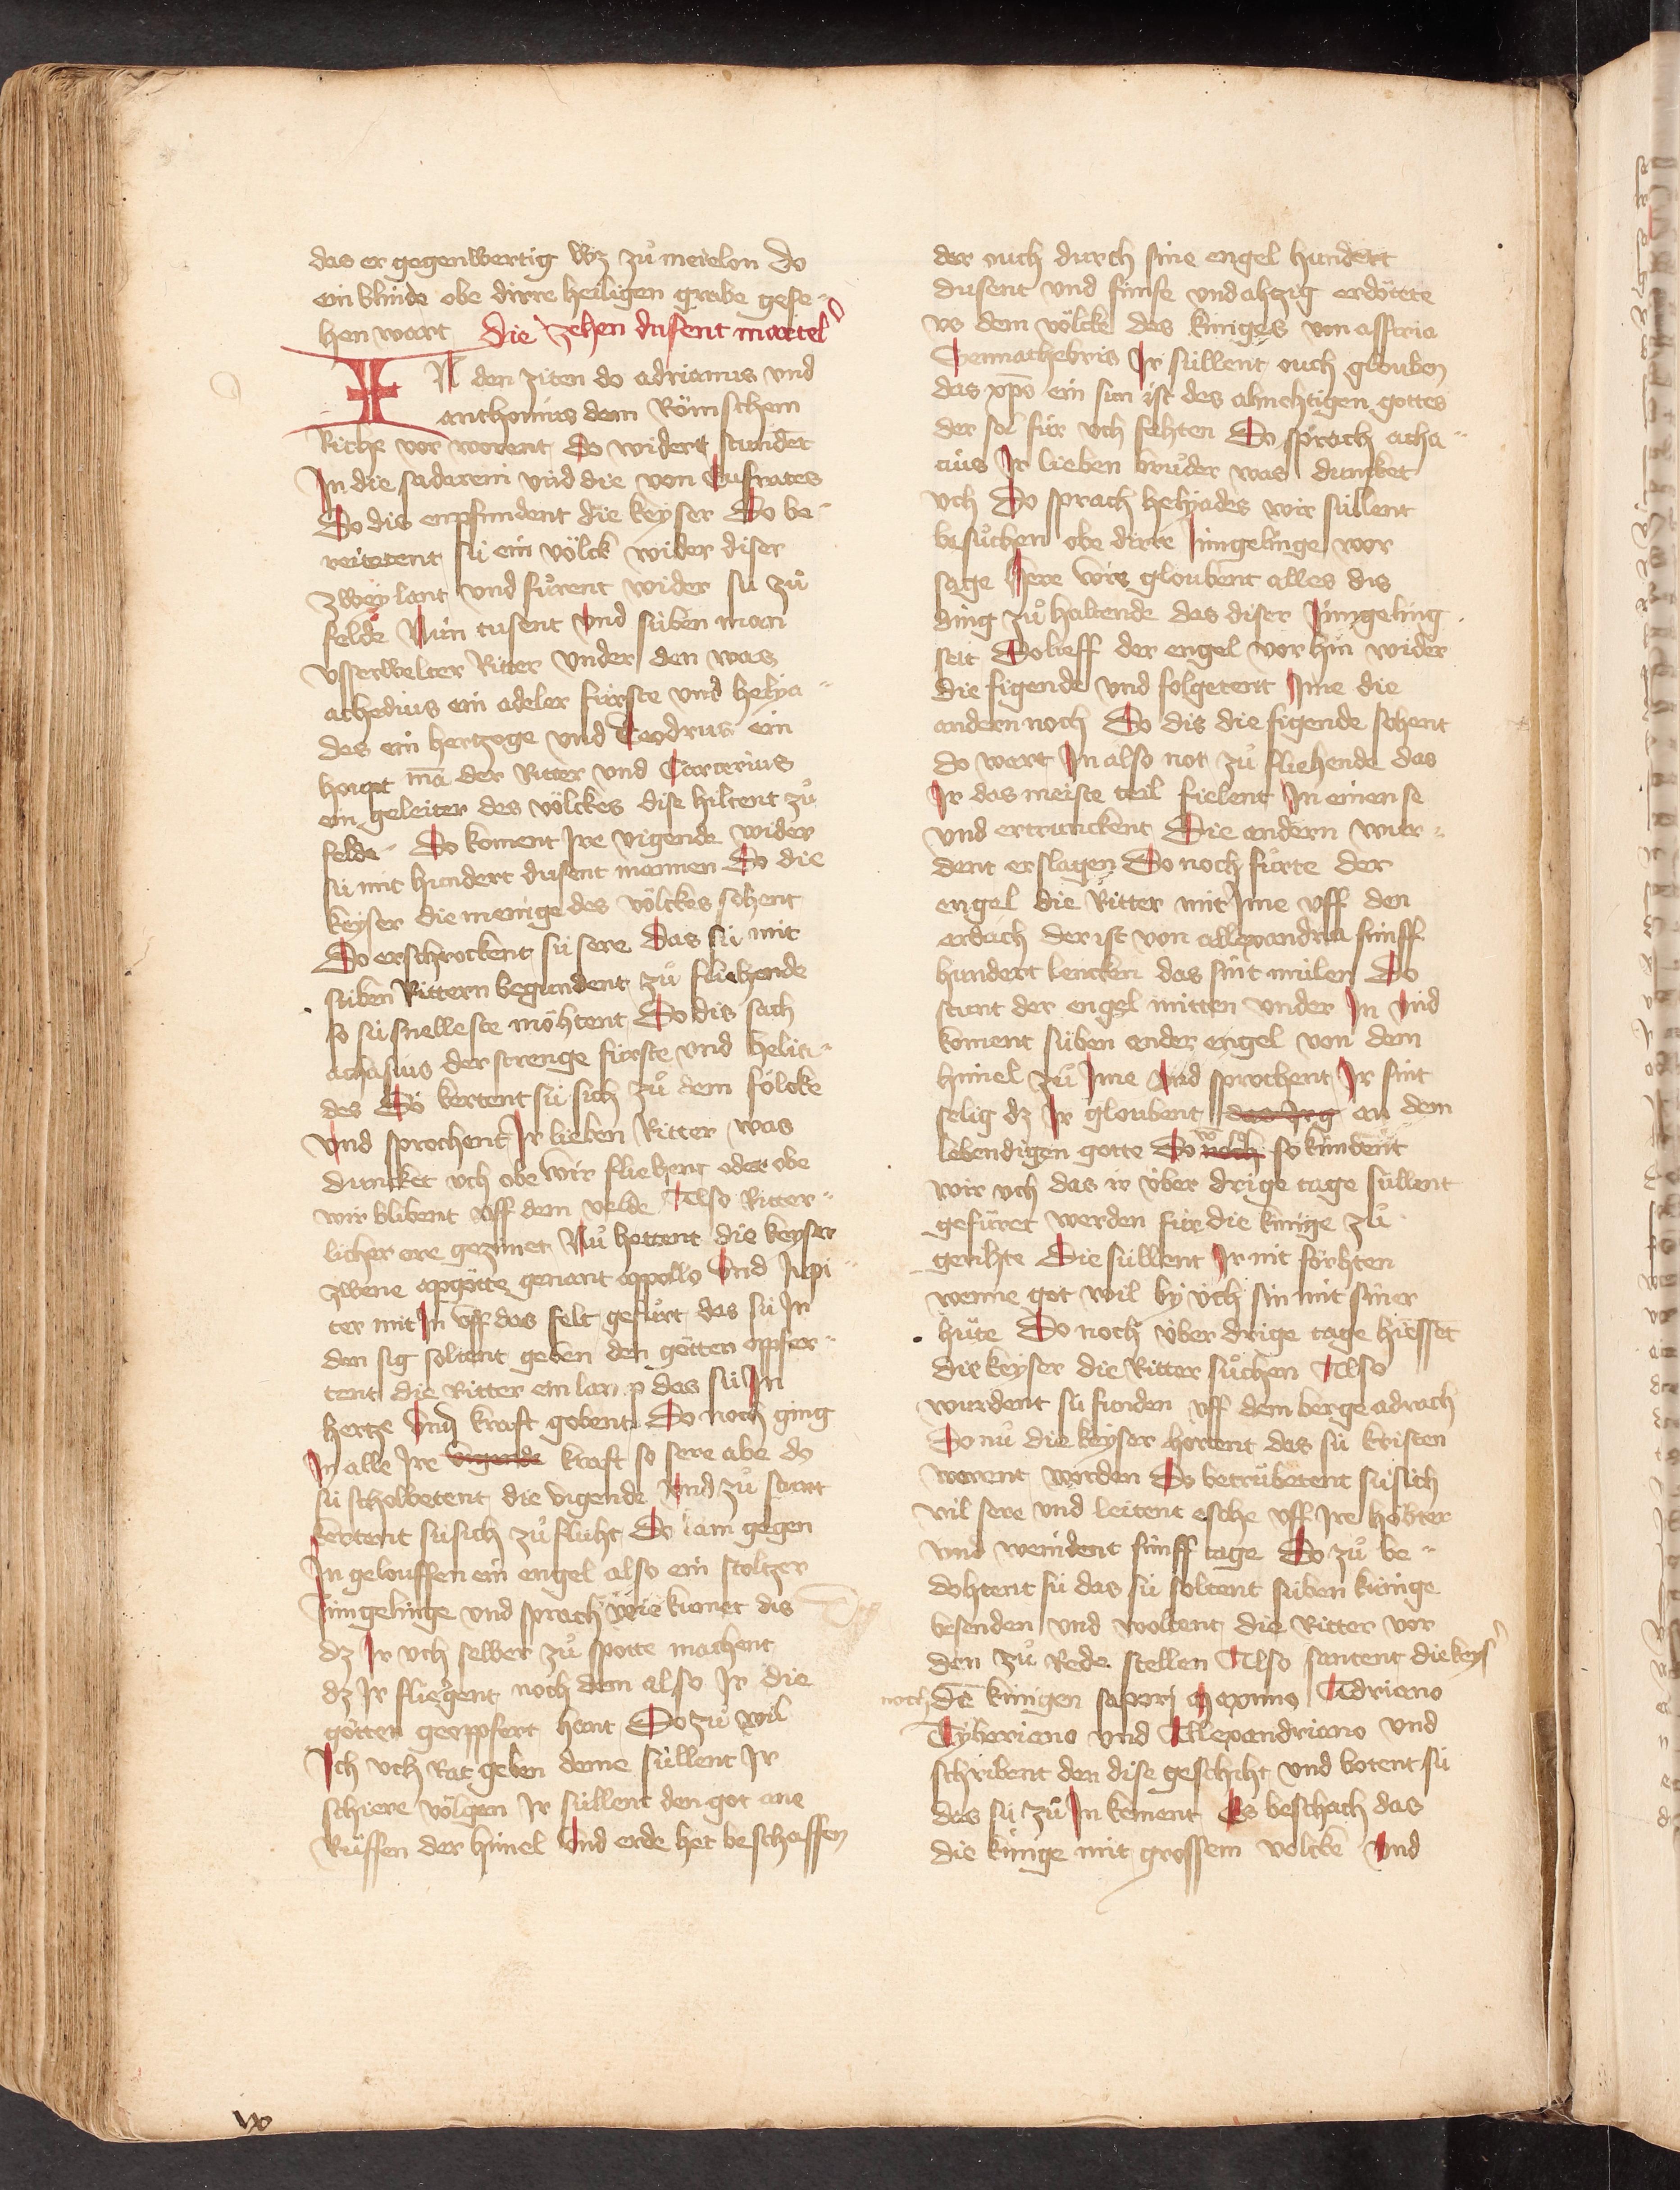 das er gegenwertig wz zuͦ meielon do
ein blinde obe dirre heiligen grabe gese-
hen wart die zehen dusent martel᾽
IN den ziten do adrianus vnd
anthonius dem Römschem
Riche vor worent Do widert stundēt
In die sadareni vnd die von Eufrates
Do dis enpfundent die keyser Do be-
reitetent sü ein völck wider diser
zwey lant vnd fuͦrent wider sü zuͦ
felde Nün tusent vnd süben man
vsserwelter Ritter vnder den was
achedius ein adeler fürste vnd helya-
des ein hertzoge vnd Teodrus ein
houpt mā der Ritter vnd Carcerius
ein geleiter des völckes dise hiltent zuͦ
felde Do koment Ire vigende wider
sü mit hundert dusent mannen Do die
keyser die menige des völckes sohent
Do erschrockent sü sere Das sü mit
süben Rittern begundent zuͦ fliehende
so sü snelleste möhtent Do dis sach
achasius der strenge fürste vnd helia-
des Do kertent sü sich zuͦ dem folcke
vnd sprochent Ir lieben Ritter was
duncket vch obe wir fliehent oder obe
wir blibent vff dem velde Also Ritter-
licher ere gezimet Nuͦ hettent die keyser
zwene apgötte genant appollo vnd Jupi-
ter mit In vff das felt gefuͦrt das sü In
den sig soltent geben den götten opfer-
tent die Ritter ein lamp das sü In
hertze vnd kraft gobent Do noch ging
In alle Ire vigende kraft so sere abe do
sü schowetent die vigende vnd zuͦ stunt
kertent sü sich zuͦ fluht Do kam gegen
In geloffen ein engel also ein stoltzer
Jungelinge vnd sprach wie kumet dis
dz Ir vch selber zuͦ spotte machent
dz Ir fliegent noch dem also Ir die
götten geopffert hant Do zuͦ wil
Ich vch Rat geben deme süllent Ir
schiere völgen Ir süllent den got ane
Rüffen der himel vnd erde het beschaffen
der ouch durch sine engel hundert
dusent vnd fünfe vnd ahzig erdötte
vs dem völcke des küniges von assiria
Sennacheribis Ir süllent ouch glouben
das xp̄s ein sun ist des almehtigen gottes
der sol für vch fehten Do sprach acha-
cius Ir lieben bruͦder was duncket
vch Do sprach helyades wir süllent
besuͦchen obe dirre Jungelinge wor
sage Here wir gloubent alles dis
ding zuͦ haltende das diser Jungeling
seit Do lieff der engel vor hin wider
die figende vnd folgetent Ime die
andern noch Do dis die figende sohent
do wart In also not zuͦ fliehende das
Ir das meiste teil fielent In einen se
vnd ertrunckent Die andern wur-
dent erslagen Do noch fuͦrte der
engel die Ritter mit Ime vff den
erdach der ist von allexandria fünff
hundert leucken das sint milen Do
stunt der engel mitten vnder In vnd
koment süben ender engel von dem
himel zuͦ Ime vnd sprochent Ir sint
selig dz Ir gloubent an dem
lebendigen gotte Do noch so kündent
wir vch das ir über drige tage süllent
gefüret werden für die künige zuͦ
gerihte Die süllent Ir nit förhten
wenne got wil by üch sin mit siner
huͦte Do noch über drige tage hiessēt
die keyser die Ritter suͦchen Also
wurdent sü funden vff dem berge adrach
Do nuͦ die keyser hortent das sü kristen
worent worden Do betruͦbetent sü sich
vil sere vnd leitent esche vff Ire höbter
vnd weindent fünff tage Do zuͦ be-
dohtent sü das sü soltent süben künige
besenden vnd woltent die Ritter vor
den zuͦ Rede stellen Also santent die keys᾽
noch dē künigen sapori maximo Adriano
Tyberiano vnd Allexandriano vnd
schribent den dise geschiht vnd botent sü
das sü zuͦ In kement Es beschach das
die künige mit grossem volcke vnd